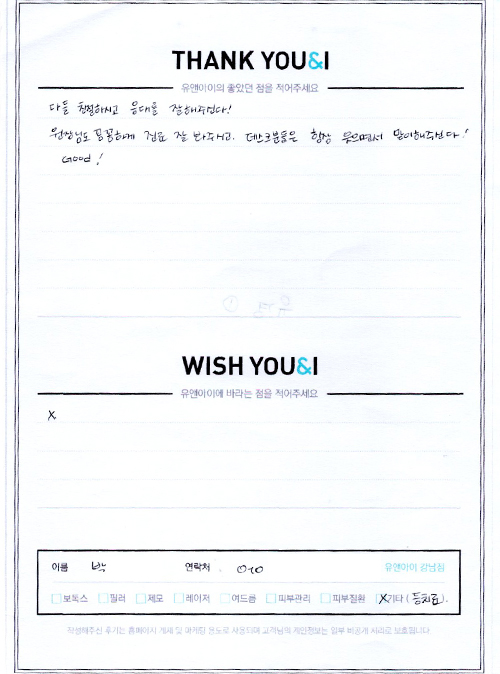 THANK YOU&I
유앤아이의 좋았던 점을 적어주세요
다들 친절하시고 응대를 잘해주신다!
원장님도 꼼꼼하게 진료 잘 봐주시고, 데스크분들은 항상 웃으면서 맞이해주신다!
Good!
WISH YOU&I
유앤아이에 바라는 점을 적어주세요
X
이름 박 연락처 010 유앤아이 강남점
보톡스 필러 제모 레이저 여드름 피부관리 피부질환 X기타 (등치료).
작성해주신 후기는 홈페이지 게재 및 마케팅 용도로 사용되며 고객님의 개인정보는 일부 비공개 처리로 보호됩니다.